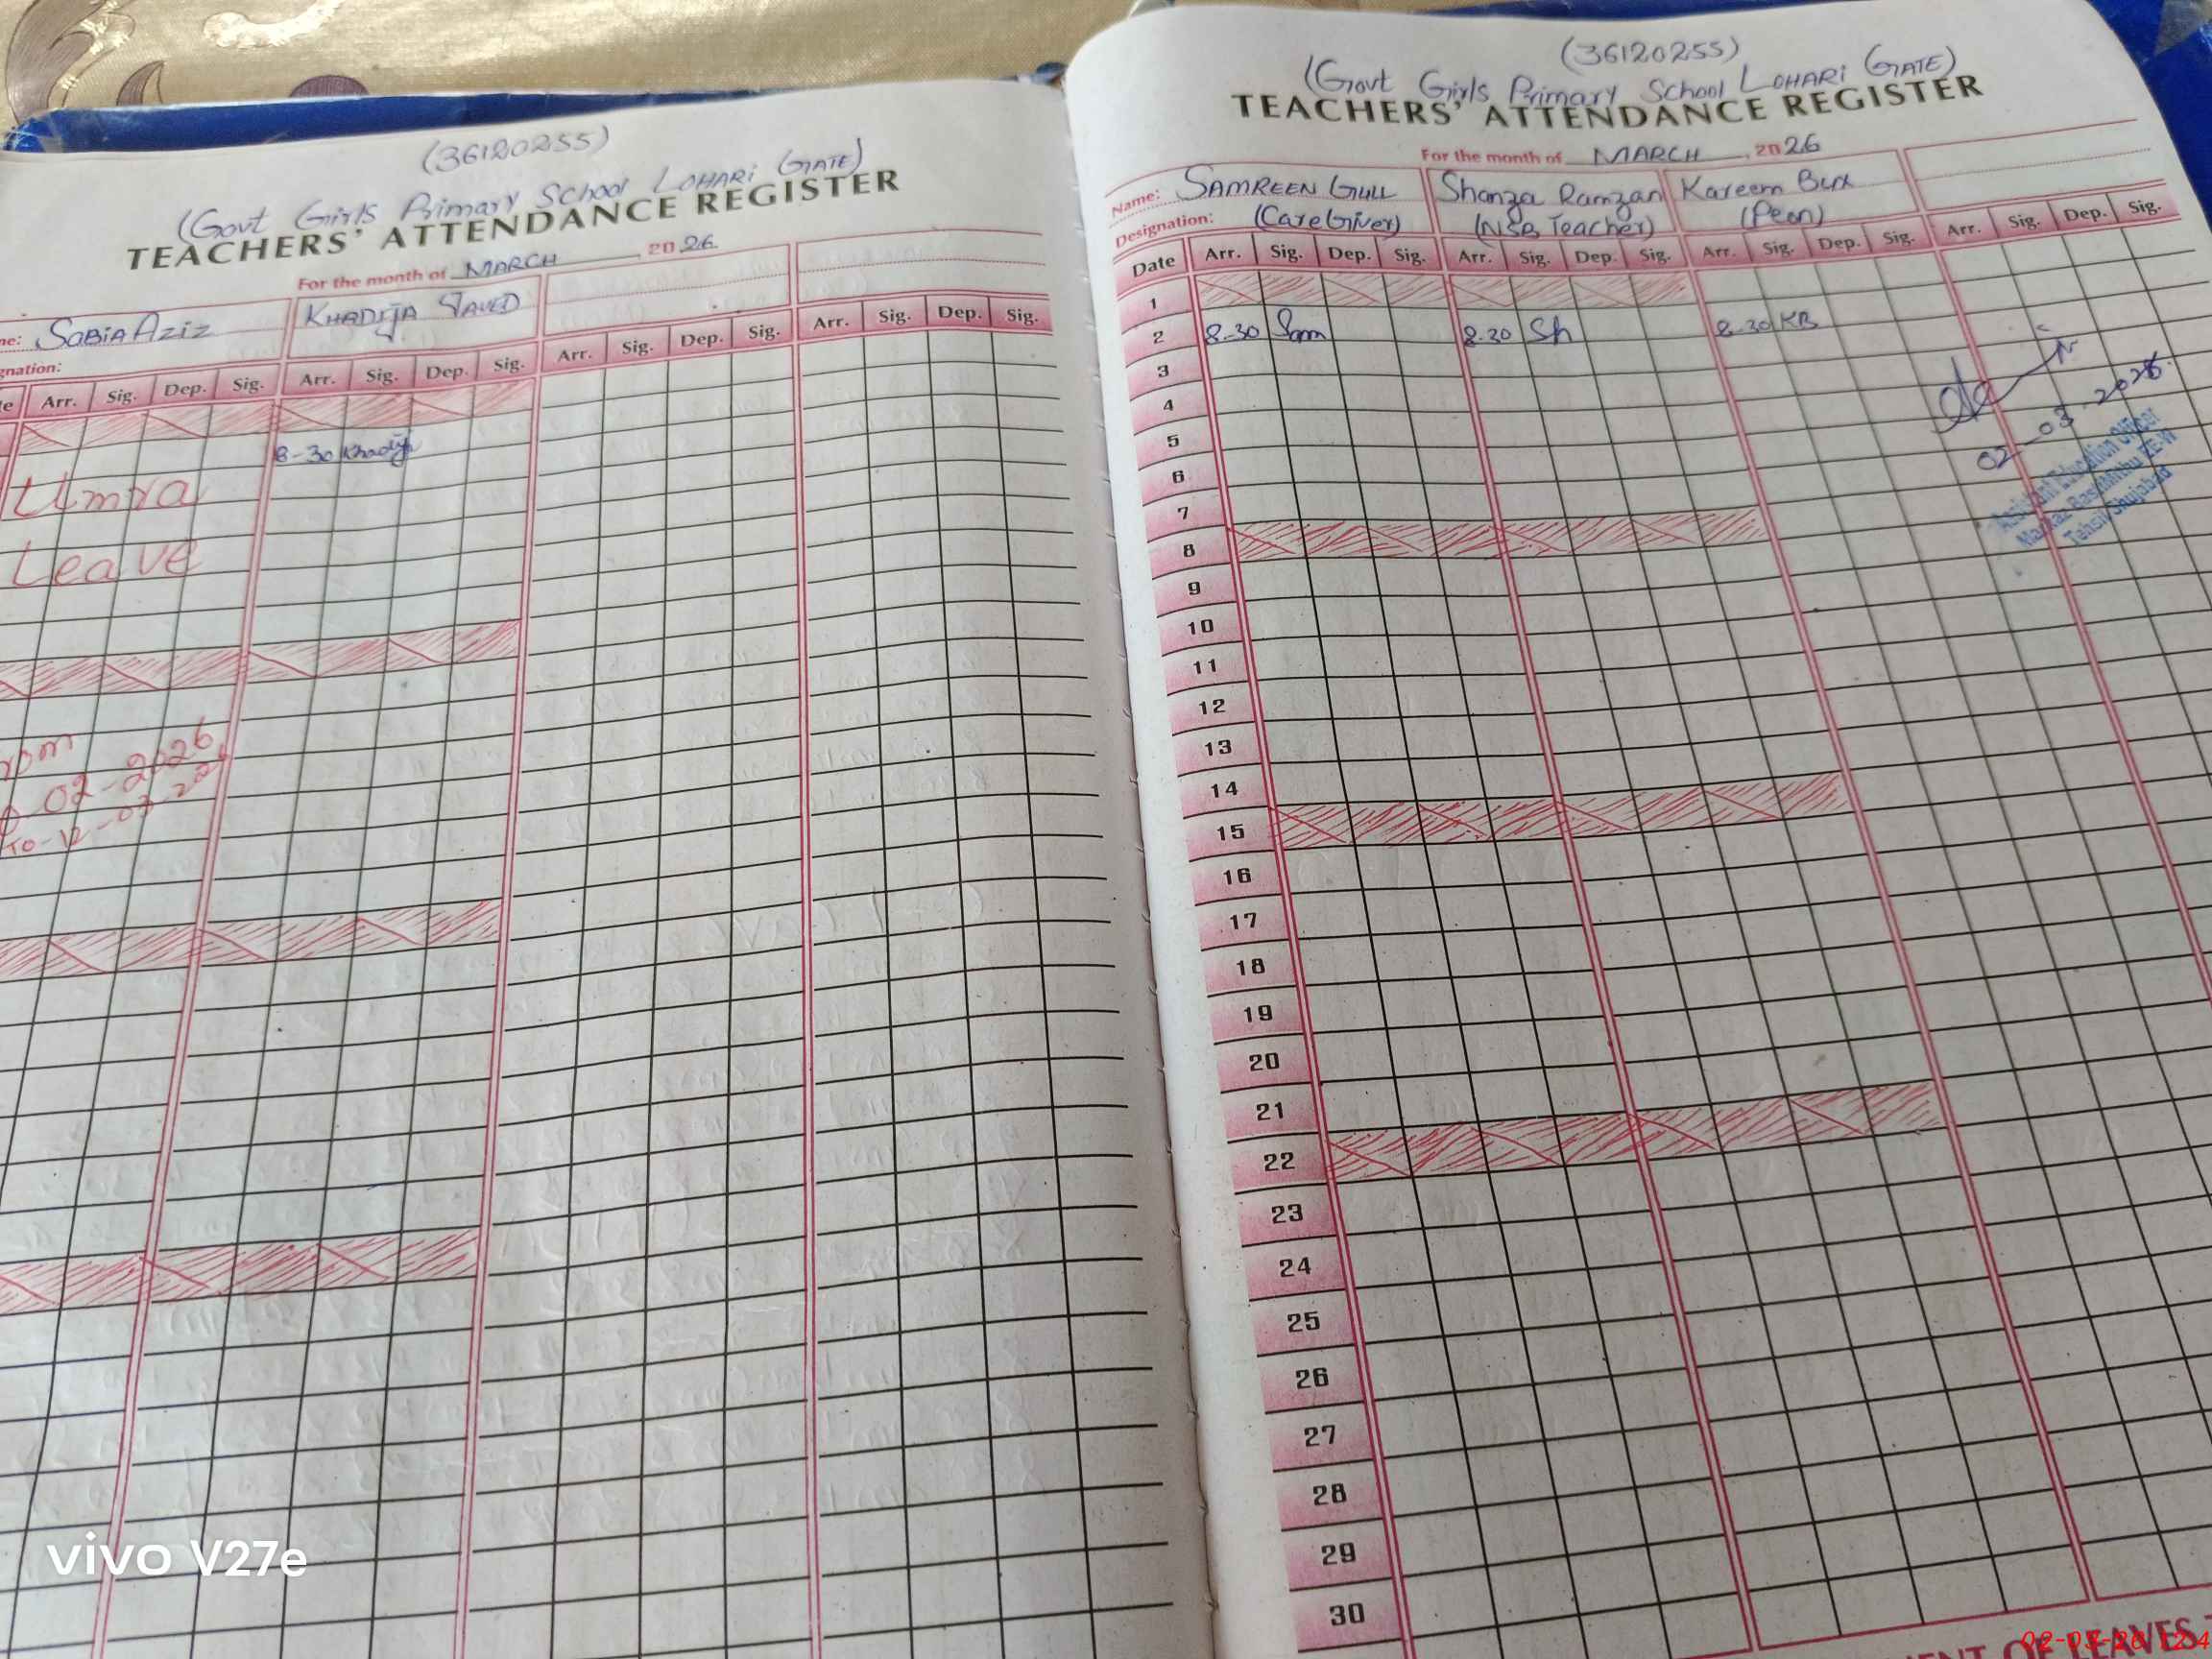 (36120255)
(Govt Girls Primary School LOHARI GATE)
TEACHERS' ATTENDANCE REGISTER
For the month of MARCH, 2026
me: SOBIA AZIZ KHADIJA JAVED
gnation:
te Arr. Sig. Dep. Sig. Arr. Sig. Dep. Sig. Arr. Sig. Dep. Sig. Arr. Sig. Dep. Sig.
8-30 Khadija
Umra
Leave
rom
02-2026
TO-12-03-2026
(36120255)
(Govt Girls Primary School LOHARI GATE)
TEACHERS' ATTENDANCE REGISTER
For the month of MARCH, 2026
Name: SAMREEN GULL Shanza Ramzan Kareem Bux
Designation: (Care Giver) (NSB Teacher) (Peon)
Date Arr. Sig. Dep. Sig. Arr. Sig. Dep. Sig. Arr. Sig. Dep. Sig. Arr. Sig. Dep. Sig.
1
2 8-30 Sam 8-30 Sh 8-30 KB
3
4
5
6
7
8
9
10
11
12
13
14
15
16
17
18
19
20
21
22
23
24
25
26
27
28
29
30
02-03-2026
Assistant Education Officer
Tehsil Shujabad
MENT OF LEAVES
vivo V27e
02-03-26 12:4